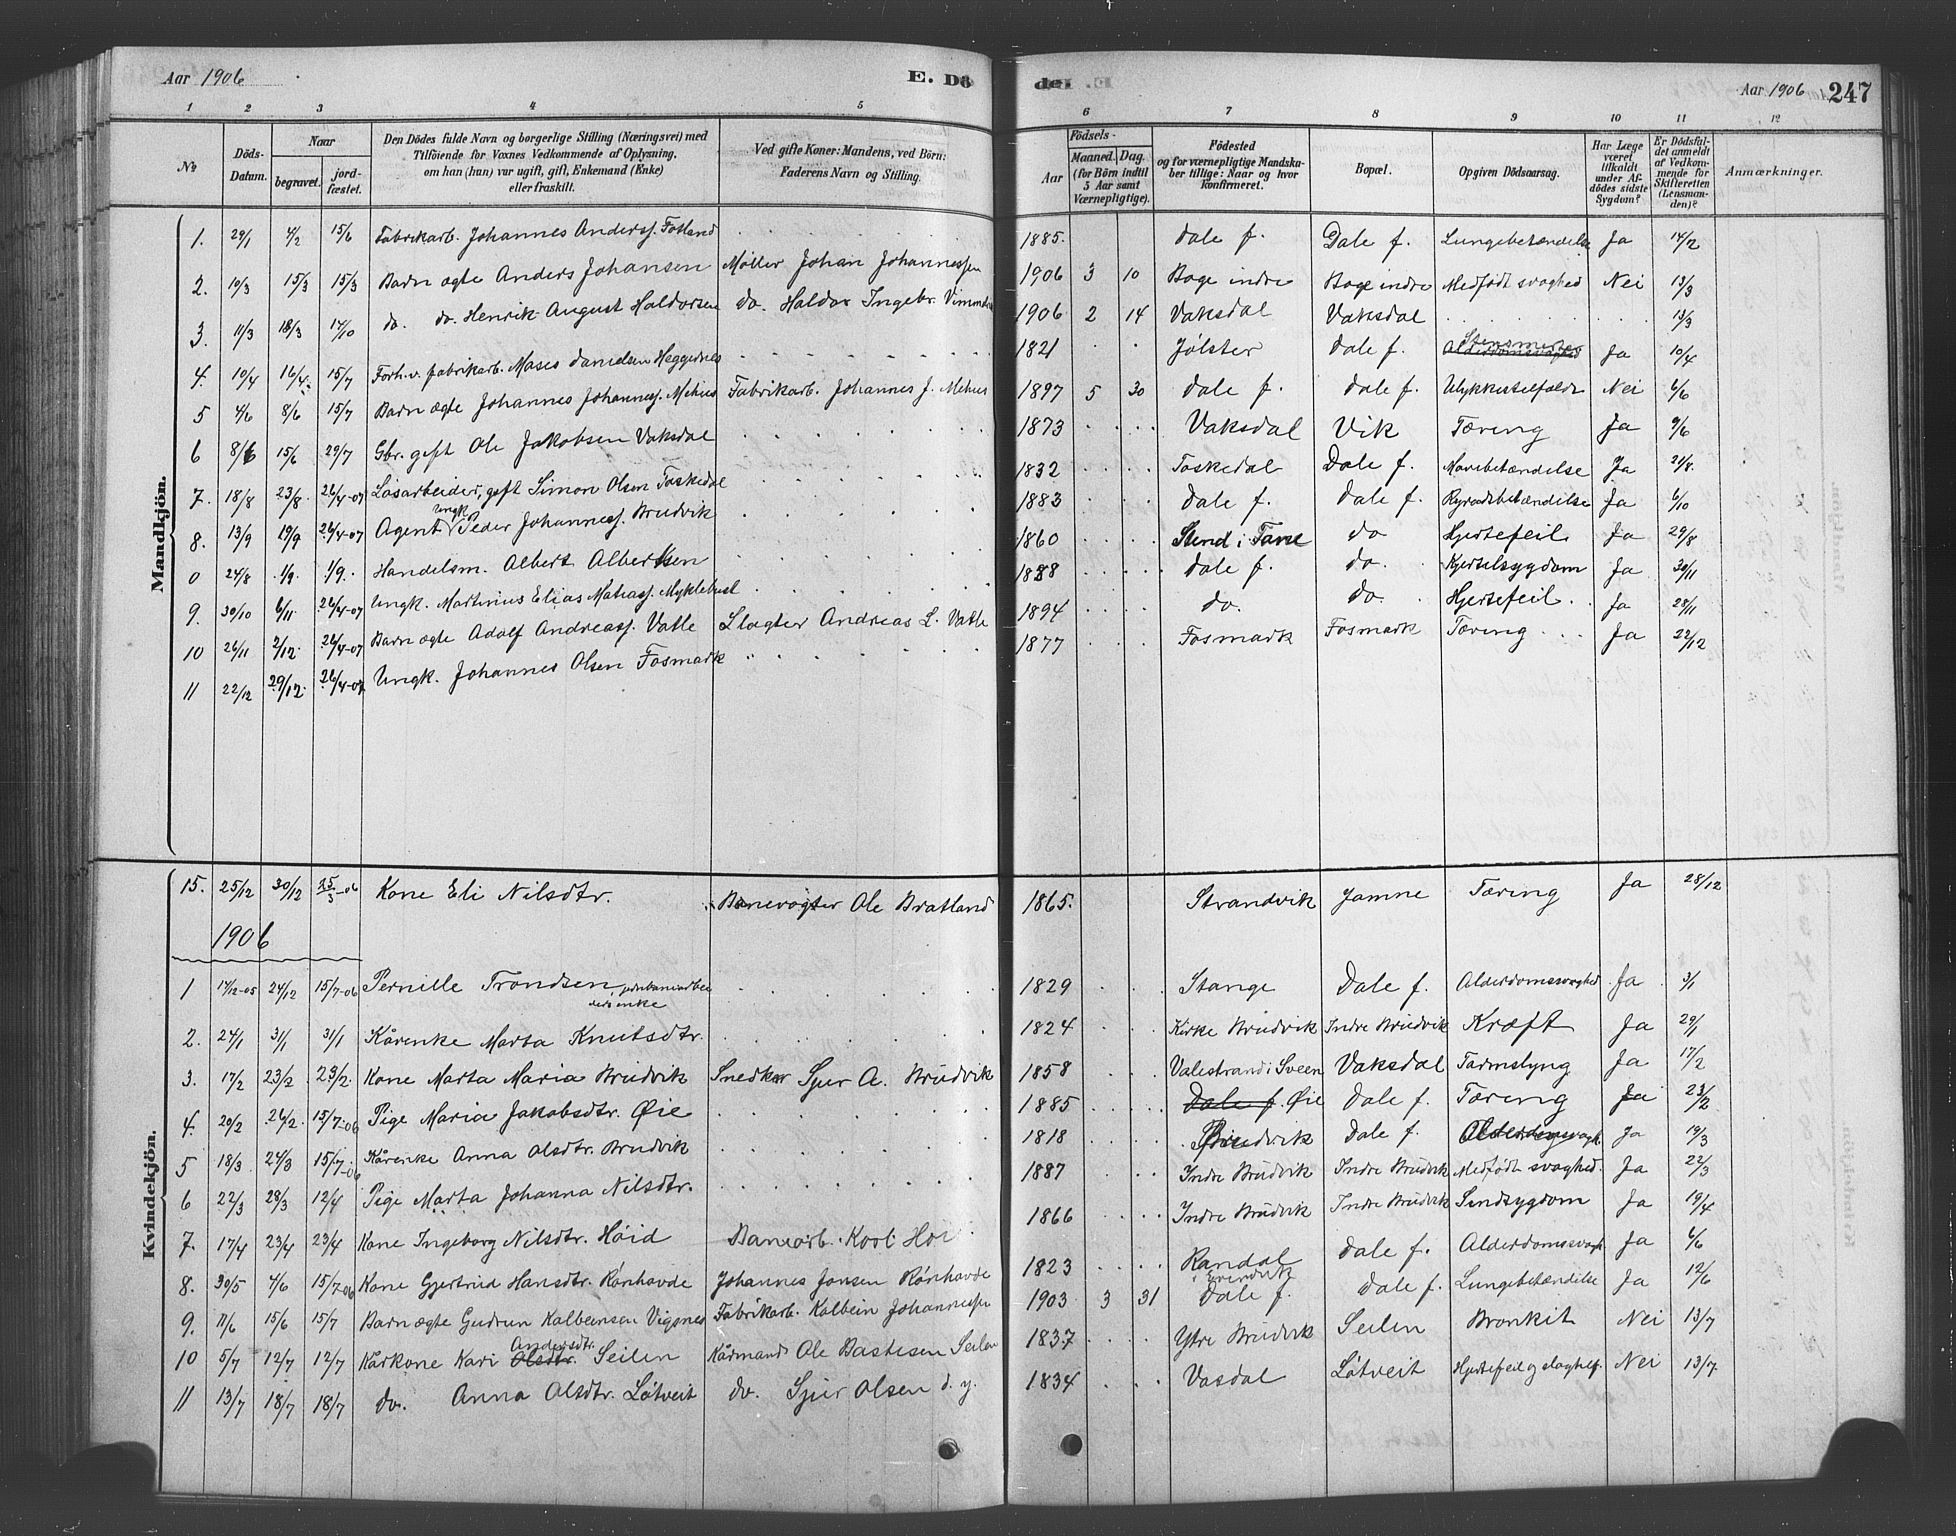 Aar 1906 E. Dö
de. Aar 1906 247
1 2 3 4 5 6 7 8 9 10 11 12
No
Döds-Datum.
Naar
begravet. jordfæstet.
Den Dödes fulde Navn og borgerlige Stilling (Næringsvei) med
Tilföiende for Voxnes Vedkommende af Oplysning,
om han (hun) var ugift, gift, Enkemand (Enke)
eller fraskilt.
Ved gifte Koner: Mandens, ved Börn:
Faderens Navn og Stilling.
Födsels-
Aar Maaned. Dag.
(for Börn indtil
5 Aar samt
Værnepligtige).
Födested
og for værnepligtige Mandskaber tillige: Naar og hvor
konfirmeret.
Bopæl.
Opgiven Dödsaarsag.
Har Læge
været
tilkaldt
under Afdödes sidste
Sygdom?
Er Dödsfaldet anmeldt
af Vedkommende for
Skifteretten
(Lensmanden)?
Anmærkninger.
Mandkjön.
1. 29/1 4/2 15/6 Fabrikarb. Johannes Anderss. Fosland 1885. Dale f. Dale f. Lungebetændelse Ja 14/2
2. 10/3 15/3 15/3 Barn ægte Anders Johansen Møller Johan Johannessen 1906 3 10 Boge indre Boge indre Medfødt svaghed Nei 13/3
3. 11/3 18/3 14/10 do. do. Henrik August Haldorsen do. Haldor Ingebr. 1906 2 14 Vaksdal Vaksdal 13/3
4. 10/4 16/4. 15/7 Forh.v. fabrikarb. Moses Danielsen Heggednes 1821 Jølster Dale f. Ja 10/4
5 4/6 8/6 15/7 Barn ægte Johannes Johanness. Mehus Fabrikarb. Johannes J. Mehus 1897 5 30 Dale f. Dale f. Ulykkestilfælde Nei 6/6
6 8/6 15/6 29/7 Gbr. gift Ole Jakobsen Vaksdal 1873 Vaksdal Vik Tæring Ja 9/6
7. 18/8 23/8. 26/4-07 Løsarbeider, gift Simon Olsen Toskedal 1832 Toskedal Dale f. Mavebetændelse Ja 21/8.
8. 13/9 19/9 26/4-07 Agent Ungk. Peder Johanness. Brudvik 1883 Dale f. Dale f. Rygradsbetændelse Ja 6/10
0 24/8 1/9. 1/9. Handelsm. Albert Albertsen 1860 Stend i Fane do Hjertefeil Ja 29/8
9. 30/10 6/11 26/4-07 Ungk. Martinius Elias Matiass. Myklebust 1888 Dale f. do. Kjertelsygdom Ja 30/11
10 26/11 2/12. 26/4-07 Barn ægte Adolf Andreass. Vatle Slagter Andreas L. Vatle 1894 do. do. Hjertefeil. Ja 28/11
11 22/12 29/12. 26/4-07 Ungk. Johannes Olsen Fosmark 1877 Fosmark Fosmark Tæring Ja 22/12
Kvindekjön.
15. 25/12 30/12 25/3-06 Kone Eli Nilsdtr. Banevogter Ole Bratland 1865. Strandvik Jamne Tæring Ja 28/12
1906
1 17/12-05 24/12 15/7-06 Pernille Trondsen jernbanearbeiders enke 1829 Stange Dale f. Alderdomssvaghed Ja 3/1
2. 24/1 31/1 31/1 Kårenke Marta Knutsdtr. 1824 Kirke Brudvik Indre Brudvik Kræft Ja 29/1
3. 17/2 23/2 23/2. Kone Marta Maria Brudvik Snedker Sjur A. Brudvik 1858 Valestrand i Sveen Vaksdal Tarmslyng Ja 17/2
4. 20/2 26/2. 15/7-06 Pige Maria Jakobsdtr. Øie 1885 Dale f. Øie Dale f. Tæring Ja 23/2
5 18/3 24/3 15/7-06 Kårenke Anna Olsdtr. Brudvik 1818 Brudvik Dale f. Alderdomsvagh. Ja 19/3
6 22/3 28/3 12/4 Pige Marta Johanna Nilsdtr. 1887 Indre Brudvik Indre Brudvik Medfødt svaghed. Ja 22/3
7. 17/4 23/4 23/4 Kone Ingeborg Nilsdtr. Høid Banearb. Karl Høi 1866 Indre Brudvik Indre Brudvik Sindsygdom Ja 19/4
8. 30/5 4/6 15/7-06 Kone Gjertrud Hansdtr. Rønhovde Johannes Jonsen Rønhovde 1823 Randal i Evindvik Dale f. Alderdomssvagh Ja 6/6
9. 11/6 15/6 15/7 Barn ægte Gudrun Kolbeensen Vigsnes Fabrikarb. Kolbein Johannessen 1903 3 31 Dale f. Dale f. Lungebetændelse Ja 12/6
10 5/7 12/7 12/7 Kårkone Kari Olsdtr. Andersdtr. Seilen Kårmand Ole Bastesen Seilen 1837 Ytre Brudvik Seilen Bronkit Nei 13/7
11 13/7 18/7 18/7 do. Anna Olsdtr. Løtveit do. Sjur Olsen d. y. 1834 Vasdal Løtveit Hjertefeil og slagtilf. Nei 13/7